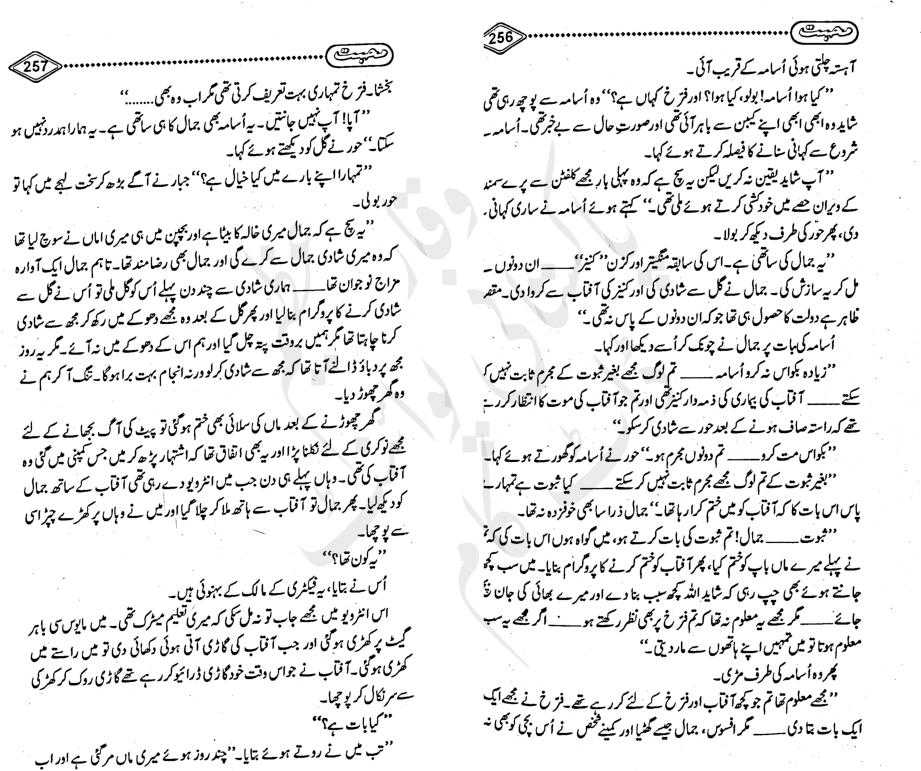 256 محبت
آہستہ چلتی ہوئی اُسامہ کے قریب آئی۔
’’کیا ہوا اُسامہ! بولو، کیا ہوا؟ اور فرّخ کہاں ہے؟‘‘ وہ اُسامہ سے پوچھ رہی تھی
شاید وہ ابھی ابھی اپنے کیبن سے باہر آئی تھی اور صورتِ حال سے بے خبر تھی۔ اُسامہ
شروع سے کہانی سنانے کا فیصلہ کرتے ہوئے کہا۔
’’آپ شاید یقین نہ کریں لیکن یہ سچ ہے کہ وہ پہلی بار مجھے کلفٹن سے پرے سمند
کے ویران حصے میں خودکشی کرتے ہوئے ملی تھی۔‘‘ کہتے ہوئے اُسامہ نے ساری کہانی
دی، پھر حور کی طرف دیکھ کر بولا۔
’’یہ جمال کی ساتھی ہے۔ اس کی سابقہ منگیتر اور کزن ’’کنیز‘‘ ____ ان دونوں
مل کر یہ سازش کی۔ جمال نے گل سے شادی کی اور کنیز کی آفتاب سے کروا دی۔ مقصد
ظاہر ہے دولت کا حصول ہی تھا جو کہ ان دونوں کے پاس نہ تھی۔‘‘
اُسامہ کی بات پر جمال نے چونک کر اُسے دیکھا اور کہا۔
’’زیادہ بکواس نہ کرو اُسامہ ____ تم لوگ مجھے بغیر ثبوت کے مجرم ثابت نہیں کر
سکتے ____ آفتاب کی بیماری کی ذمہ دار کنیز تھی اور تم جو آفتاب کی موت کا انتظار کر رہے
تھے کہ راستہ صاف ہونے کے بعد حور سے شادی کر سکو۔‘‘
’’بکواس مت کرو ____ تم دونوں مجرم ہو۔‘‘ حور نے اُسامہ کو گھورتے ہوئے کہا۔
’’بغیر ثبوت کے تم لوگ مجھے مجرم ثابت نہیں کر سکتے ____ کیا ثبوت ہے تمہارے
پاس اس بات کا کہ آفتاب کو میں ختم کرا رہا تھا۔‘‘ جمال ذرا سا بھی خوفزدہ نہ تھا۔
’’ثبوت ____ جمال! تم ثبوت کی بات کرتے ہو، میں گواہ ہوں اس بات کی کہ تم
نے پہلے میرے ماں باپ کو ختم کیا، پھر آفتاب کو ختم کرنے کا پروگرام بنایا۔ میں سب کچھ
جانتے ہوئے بھی چپ رہی کہ شاید اللہ کچھ سبب بنا دے اور میرے بھائی کی جان بچ
جائے ____ مگر مجھے یہ معلوم نہ تھا کہ تم فرّخ پر بھی نظر رکھتے ہو ____ اگر مجھے یہ سب
معلوم ہوتا تو میں تمہیں اپنے ہاتھوں سے مار دیتی۔‘‘
پھر وہ اُسامہ کی طرف مڑی۔
’’مجھے معلوم تھا تم جو کچھ آفتاب اور فرّخ کے لئے کر رہے تھے۔ فرّخ نے مجھے ایک
ایک بات بتا دی ____ مگر افسوس، جمال جیسے گھٹیا اور کمینے شخص نے اُس بچی کو بھی نہ
257 محبت
بخشا۔ فرّخ تمہاری بہت تعریف کرتی تھی مگر اب وہ بھی ........‘‘
’’آپا! آپ نہیں جانتیں۔ یہ اُسامہ بھی جمال کا ہی ساتھی ہے۔ یہ ہمارا ہمدرد نہیں ہو
سکتا۔‘‘ حور نے گل کو دیکھتے ہوئے کہا۔
’’تمہارا اپنے بارے میں کیا خیال ہے؟‘‘ جبار نے آگے بڑھ کر سخت لہجے میں کہا تو
حور بولی۔
’’یہ سچ ہے کہ جمال میری خالہ کا بیٹا ہے اور بچپن میں ہی میری اماں نے سوچ لیا تھا
کہ وہ میری شادی جمال سے کرے گی اور جمال بھی رضامند تھا۔ تاہم جمال ایک آوارہ
مزاج نوجوان تھا ____ ہماری شادی سے چند دن پہلے اُس کو گل ملی تو اُس نے گل سے
شادی کرنے کا پروگرام بنا لیا اور پھر گل کے بعد وہ مجھے دھوکے میں رکھ کر مجھ سے شادی
کرنا چاہتا تھا مگر ہمیں بروقت پتہ چل گیا اور ہم اس کے دھوکے میں نہ آئے۔ مگر یہ روز
مجھ پر دباؤ ڈالنے آتا تھا کہ مجھ سے شادی کر لو ورنہ انجام بہت برا ہوگا۔ تنگ آ کر ہم نے
وہ گھر چھوڑ دیا۔
گھر چھوڑنے کے بعد ماں کی سلائی بھی ختم ہو گئی تو پیٹ کی آگ بجھانے کے لئے
مجھے نوکری کے لئے نکلنا پڑا اور یہ بھی اتفاق تھا کہ اشتہار پڑھ کر میں جس کمپنی میں گئی وہ
آفتاب کی تھی۔ وہاں پہلے ہی دن جب میں انٹرویو دے رہی تھی آفتاب کے ساتھ جمال
کو دیکھ لیا۔ پھر جمال تو آفتاب سے ہاتھ ملا کر چلا گیا اور میں نے وہاں پر کھڑے چپڑاسی
سے پوچھا۔
’’یہ کون تھا؟‘‘
اُس نے بتایا، یہ فیکٹری کے مالک کے بہنوئی ہیں۔
اس انٹرویو میں مجھے جاب تو نہ مل سکی کہ میری تعلیم میٹرک تھی۔ میں مایوس سی باہر
گیٹ پر کھڑی ہو گئی اور جب آفتاب کی گاڑی آتی ہوئی دکھائی دی تو میں راستے میں
کھڑی ہو گئی۔ آفتاب نے جو اس وقت خود گاڑی ڈرائیو کر رہے تھے گاڑی روک کر کھڑکی
سے سر نکال کر پوچھا۔
’’کیا بات ہے؟‘‘
’’تب میں نے روتے ہوئے بتایا۔ ’’چند روز ہوئے میری ماں مر گئی ہے اور اب